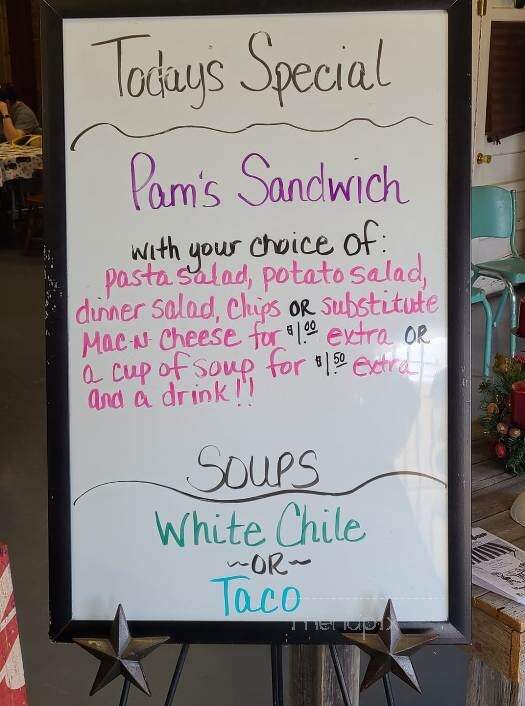 Today's Special
Pam's Sandwich
with your choice of:
pasta salad, potato salad,
dinner salad, chips OR substitute
Mac-N-Cheese for $1.00 extra OR
a cup of soup for $1.50 extra
and a drink!!
SOUPS
White Chile
~OR~
Taco
menupix